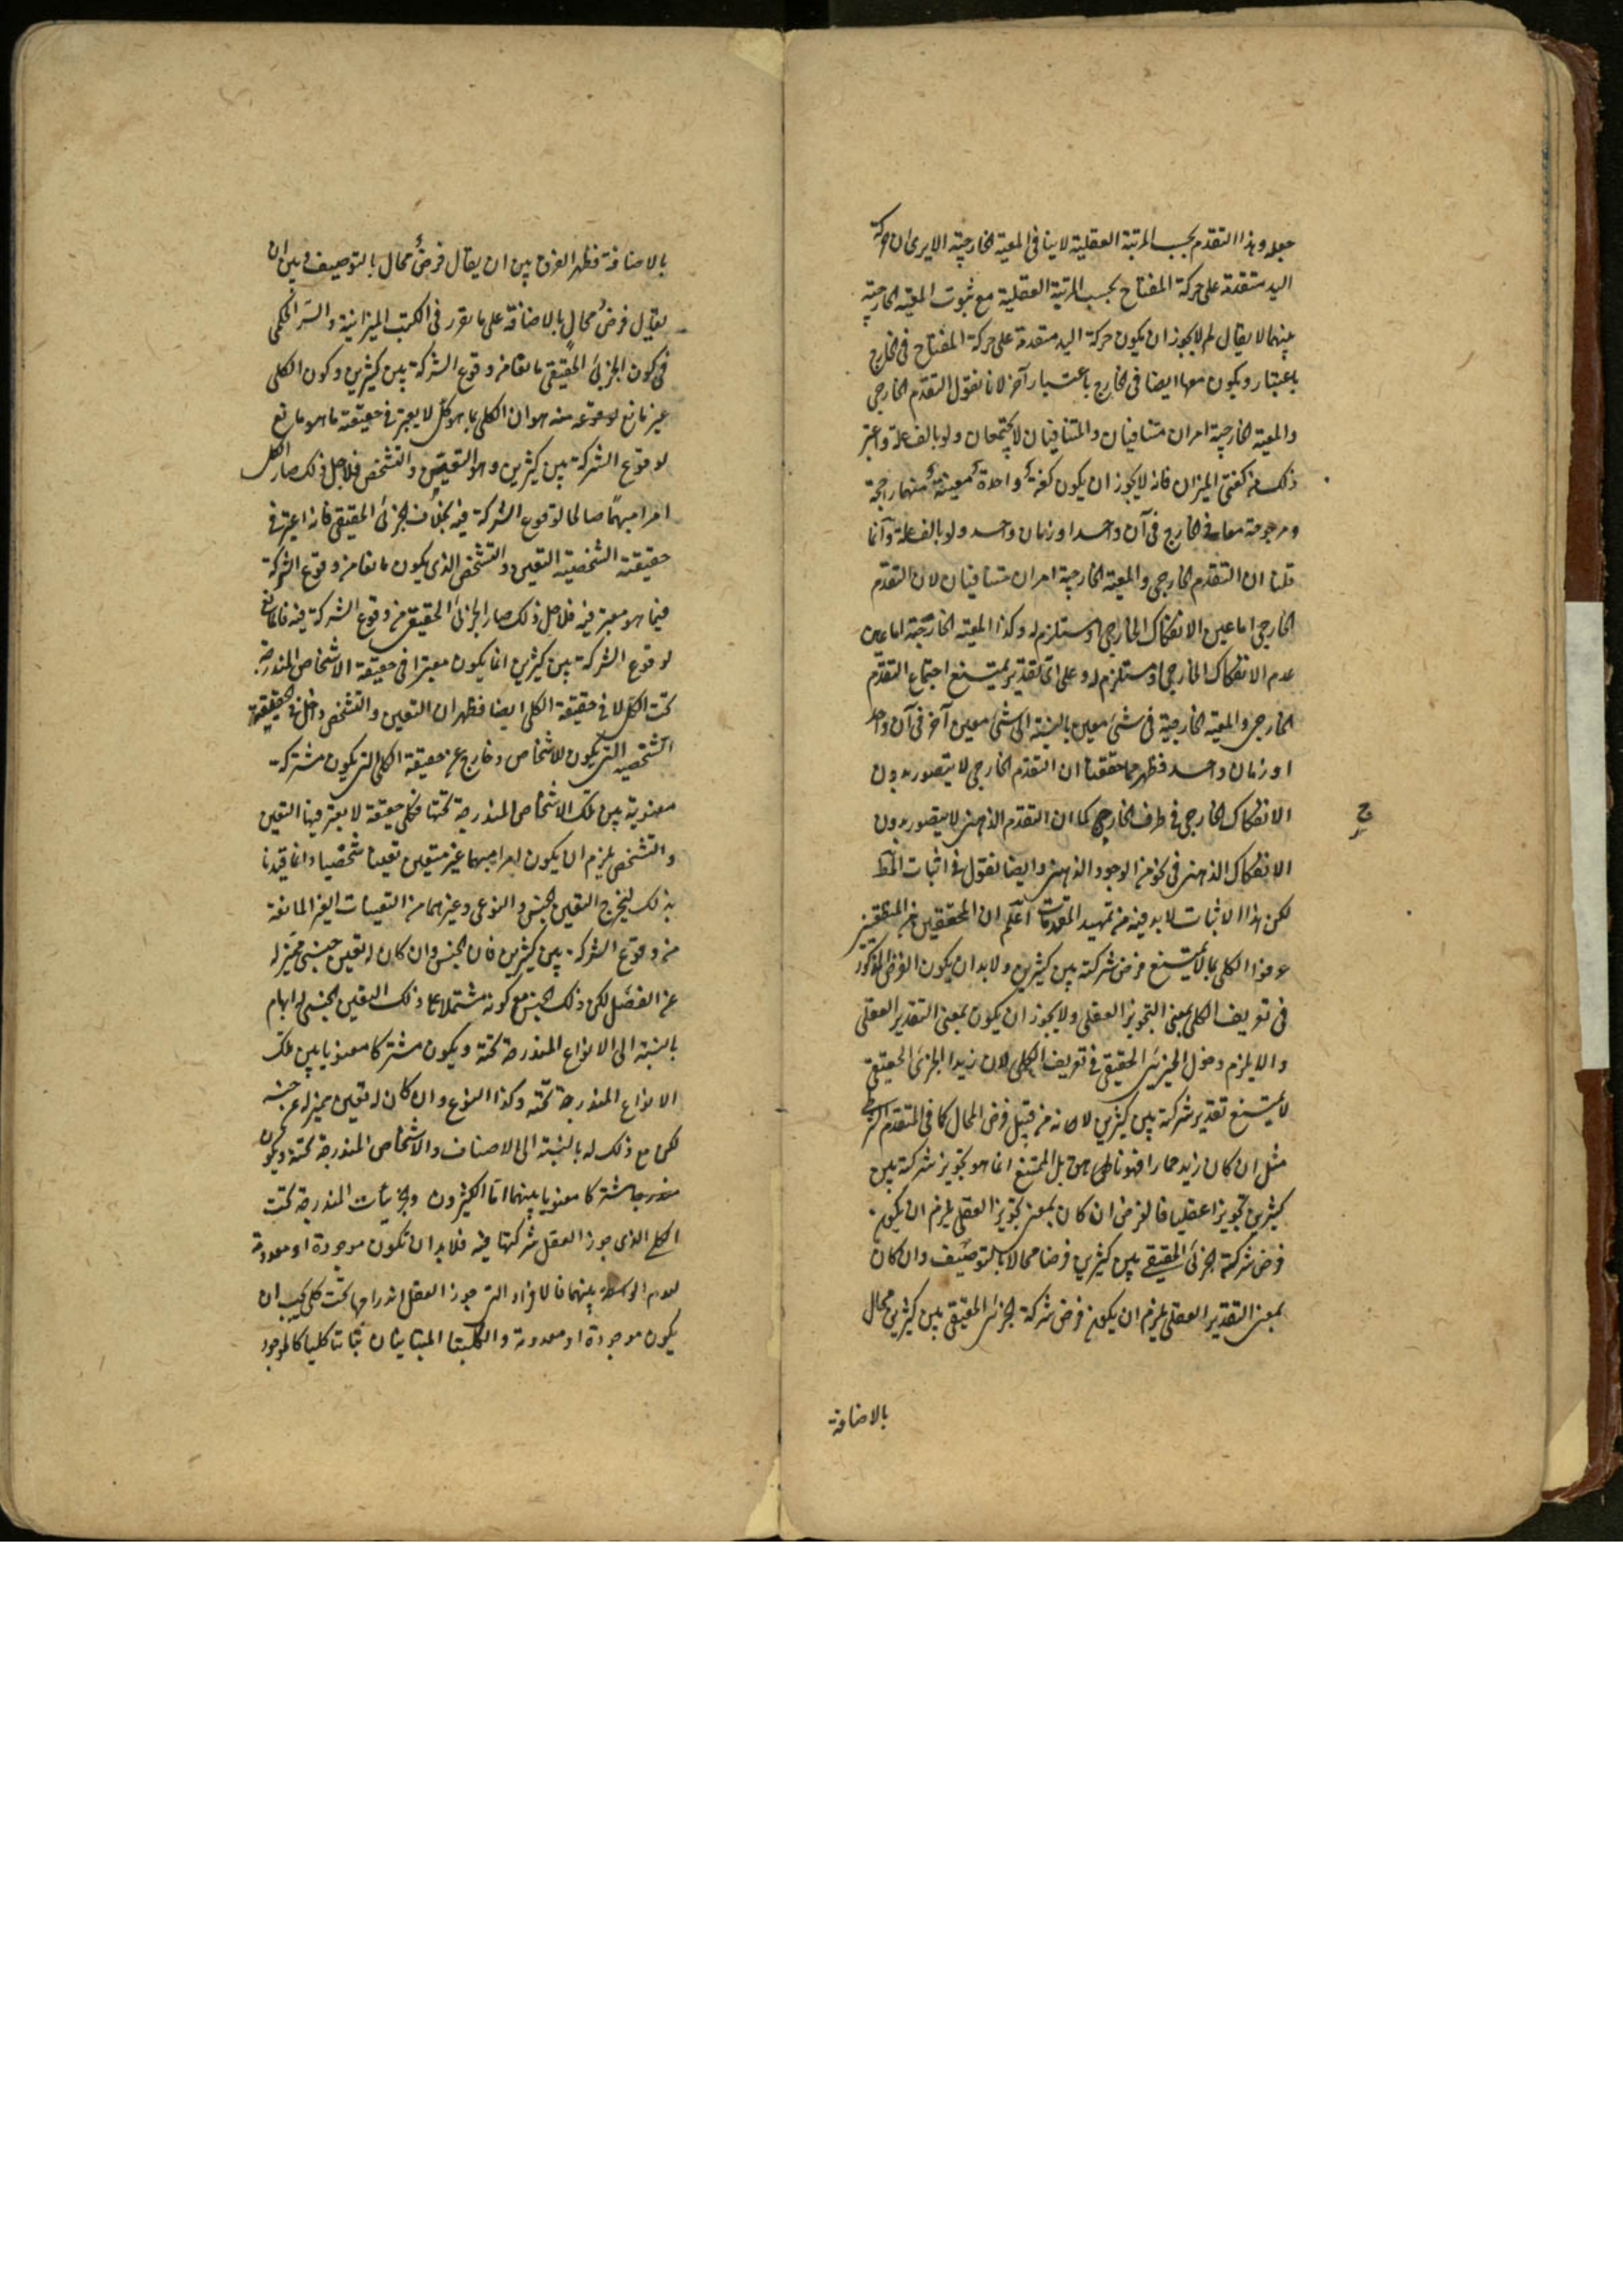 جعله وهذا التقدم بحسب المرتبة العقلية لا ينافى المعية الخارجية الا يرى ان حركة
اليد متقدمة على حركة المفتاح بحسب المرتبة العقلية مع ثبوت المعية الخارجية
بينهما لا يقال لم لا يجوز ان يكون حركة اليد متقدمة على حركة المفتاح فى الخارج
باعتبار ويكون معها ايضا فى الخارج باعتبار آخر لانا نقول التقدم الخارجى
والمعية الخارجية امران متنافيان والمتنافيان لا يجتمعان ولو بالف علة واعتبر
ذلك من كفتى الميزان فانه لا يجوز ان يكون كفة واحدة معينة منهما راجحة
ومرجوحة معا فى الخارج فى آن واحد او زمان واحد ولو بالف علة وانما
قلنا ان التقدم الخارجى والمعية الخارجية امران متنافيان لان التقدم
الخارجى اما عين الانفكاك الخارجى او مستلزم له وكذا المعية الخارجية اما عين
عدم الانفكاك الخارجى او مستلزم له وعلى اى تقدير يمتنع اجتماع التقدم
الخارجى والمعية الخارجية فى شئ معين بالنسبة الى شئ معين آخر فى آن واحد
او زمان واحد فظهر مما حققنا ان التقدم الخارجى لا يتصور بدون
الانفكاك الخارجى فى ظرف الخارج كما ان التقدم الذهنى لا يتصور بدون
الانفكاك الذهنى فى نحو من الوجود الذهنى وايضا نقول فى اثبات المط
لكن هذا الاثبات لا بد فيه من تمهيد المقدمات اعلم ان المحققين من المنطقيين
عرفوا الكلى بما لا يمتنع فرض شركته بين كثيرين ولا بد ان يكون الفرض المذكور
فى تعريف الكلى بمعنى التجويز العقلى ولا يجوز ان يكون بمعنى التقدير العقلى
والا يلزم دخول الجزئى الحقيقى فى تعريف الكلى لان زيدا الجزئى الحقيقى
لا يمتنع تقدير شركته بين كثيرين لانه من قبيل فرض المحال كما فى المتقدم الشرطى
مثل ان كان زيد حمارا فهو ناهق بل الممتنع انما هو تجويز شركته بين
كثيرين تجويزا عقليا فالفرض ان كان بمعنى تجويز العقل يلزم ان يكون
فرض شركة الجزئى الحقيقى بين كثيرين فرضا محالا بالتوصيف وان كان
بمعنى التقدير العقلى يلزم ان يكون فرض شركة الجزئى الحقيقى بين كثيرين محال
بالاضافة
بالاضافة فظهر الفرق بين ان يقال فرض محال بالتوصيف وبين ان
يقال فرض محال بالاضافة على ما تقرر فى الكتب الميزانية والسر الحكمى
فى كون الجزئى الحقيقى مانعا من وقوع الشركة بين كثيرين وكون الكلى
غير مانع لوقوعه منه هو ان الكلى بما هو كلى لا يعتبر فى حقيقته ما هو مانع
لوقوع الشركة بين كثيرين وهو التعين والتشخص فلاجل ذلك صار الكلى
امرا مبهما صالحا لوقوع الشركة فيه بخلاف الجزئى الحقيقى فانه اعتبر فى
حقيقته الشخصية التعين والتشخص الذى يكون مانعا من وقوع الشركة
فيما هو معتبر فيه فلاجل ذلك صار الجزئى الحقيقى من وقوع الشركة فيه فالمانع
لوقوع الشركة بين كثيرين انما يكون معتبرا فى حقيقة الاشخاص المندرجة
تحت الكلى لا فى حقيقة الكلى ايضا فظهر ان التعين والتشخص داخل فى الحقيقة
الشخصية التى يكون للاشخاص وخارج عن حقيقة الكلى التى يكون مشتركة
معنوية بين تلك الاشخاص المندرجة تحتها فكل حقيقة لا يعتبر فيها التعين
والتشخص يلزم ان يكون امرا مبهما غير متعين تعينا شخصيا وانما قيدنا
بذلك ليخرج التعين الجنسى والنوعى وغيرهما من التعينات الغير المانعة
من وقوع الشركة بين كثيرين فان الجنس وان كان له تعين جنسى مميز له
عن الفصل لكن ذلك الجنس مع كونه مشتملا على ذلك التعين الجنسى له ابهام
بالنسبة الى الانواع المندرجة تحته ويكون مشتركا معنويا بين تلك
الانواع المندرجة تحته وكذا النوع وان كان له تعين مميز له عن جنسه
لكن مع ذلك له بالنسبة الى الاصناف والاشخاص المندرجة تحته ويكون
مشتركا معنويا بينهما اما الكثيرون والجزئيات المندرجة تحت
الكلى الذى جوز العقل شركتها فيه فلا بد ان تكون موجودة او معدومة
لعدم الواسطة بينهما فالافراد التى جوز العقل اندراجها تحت كلى يجب ان
يكون موجودة او معدومة والكليتا المتباينان تباينا كليا كالموجود